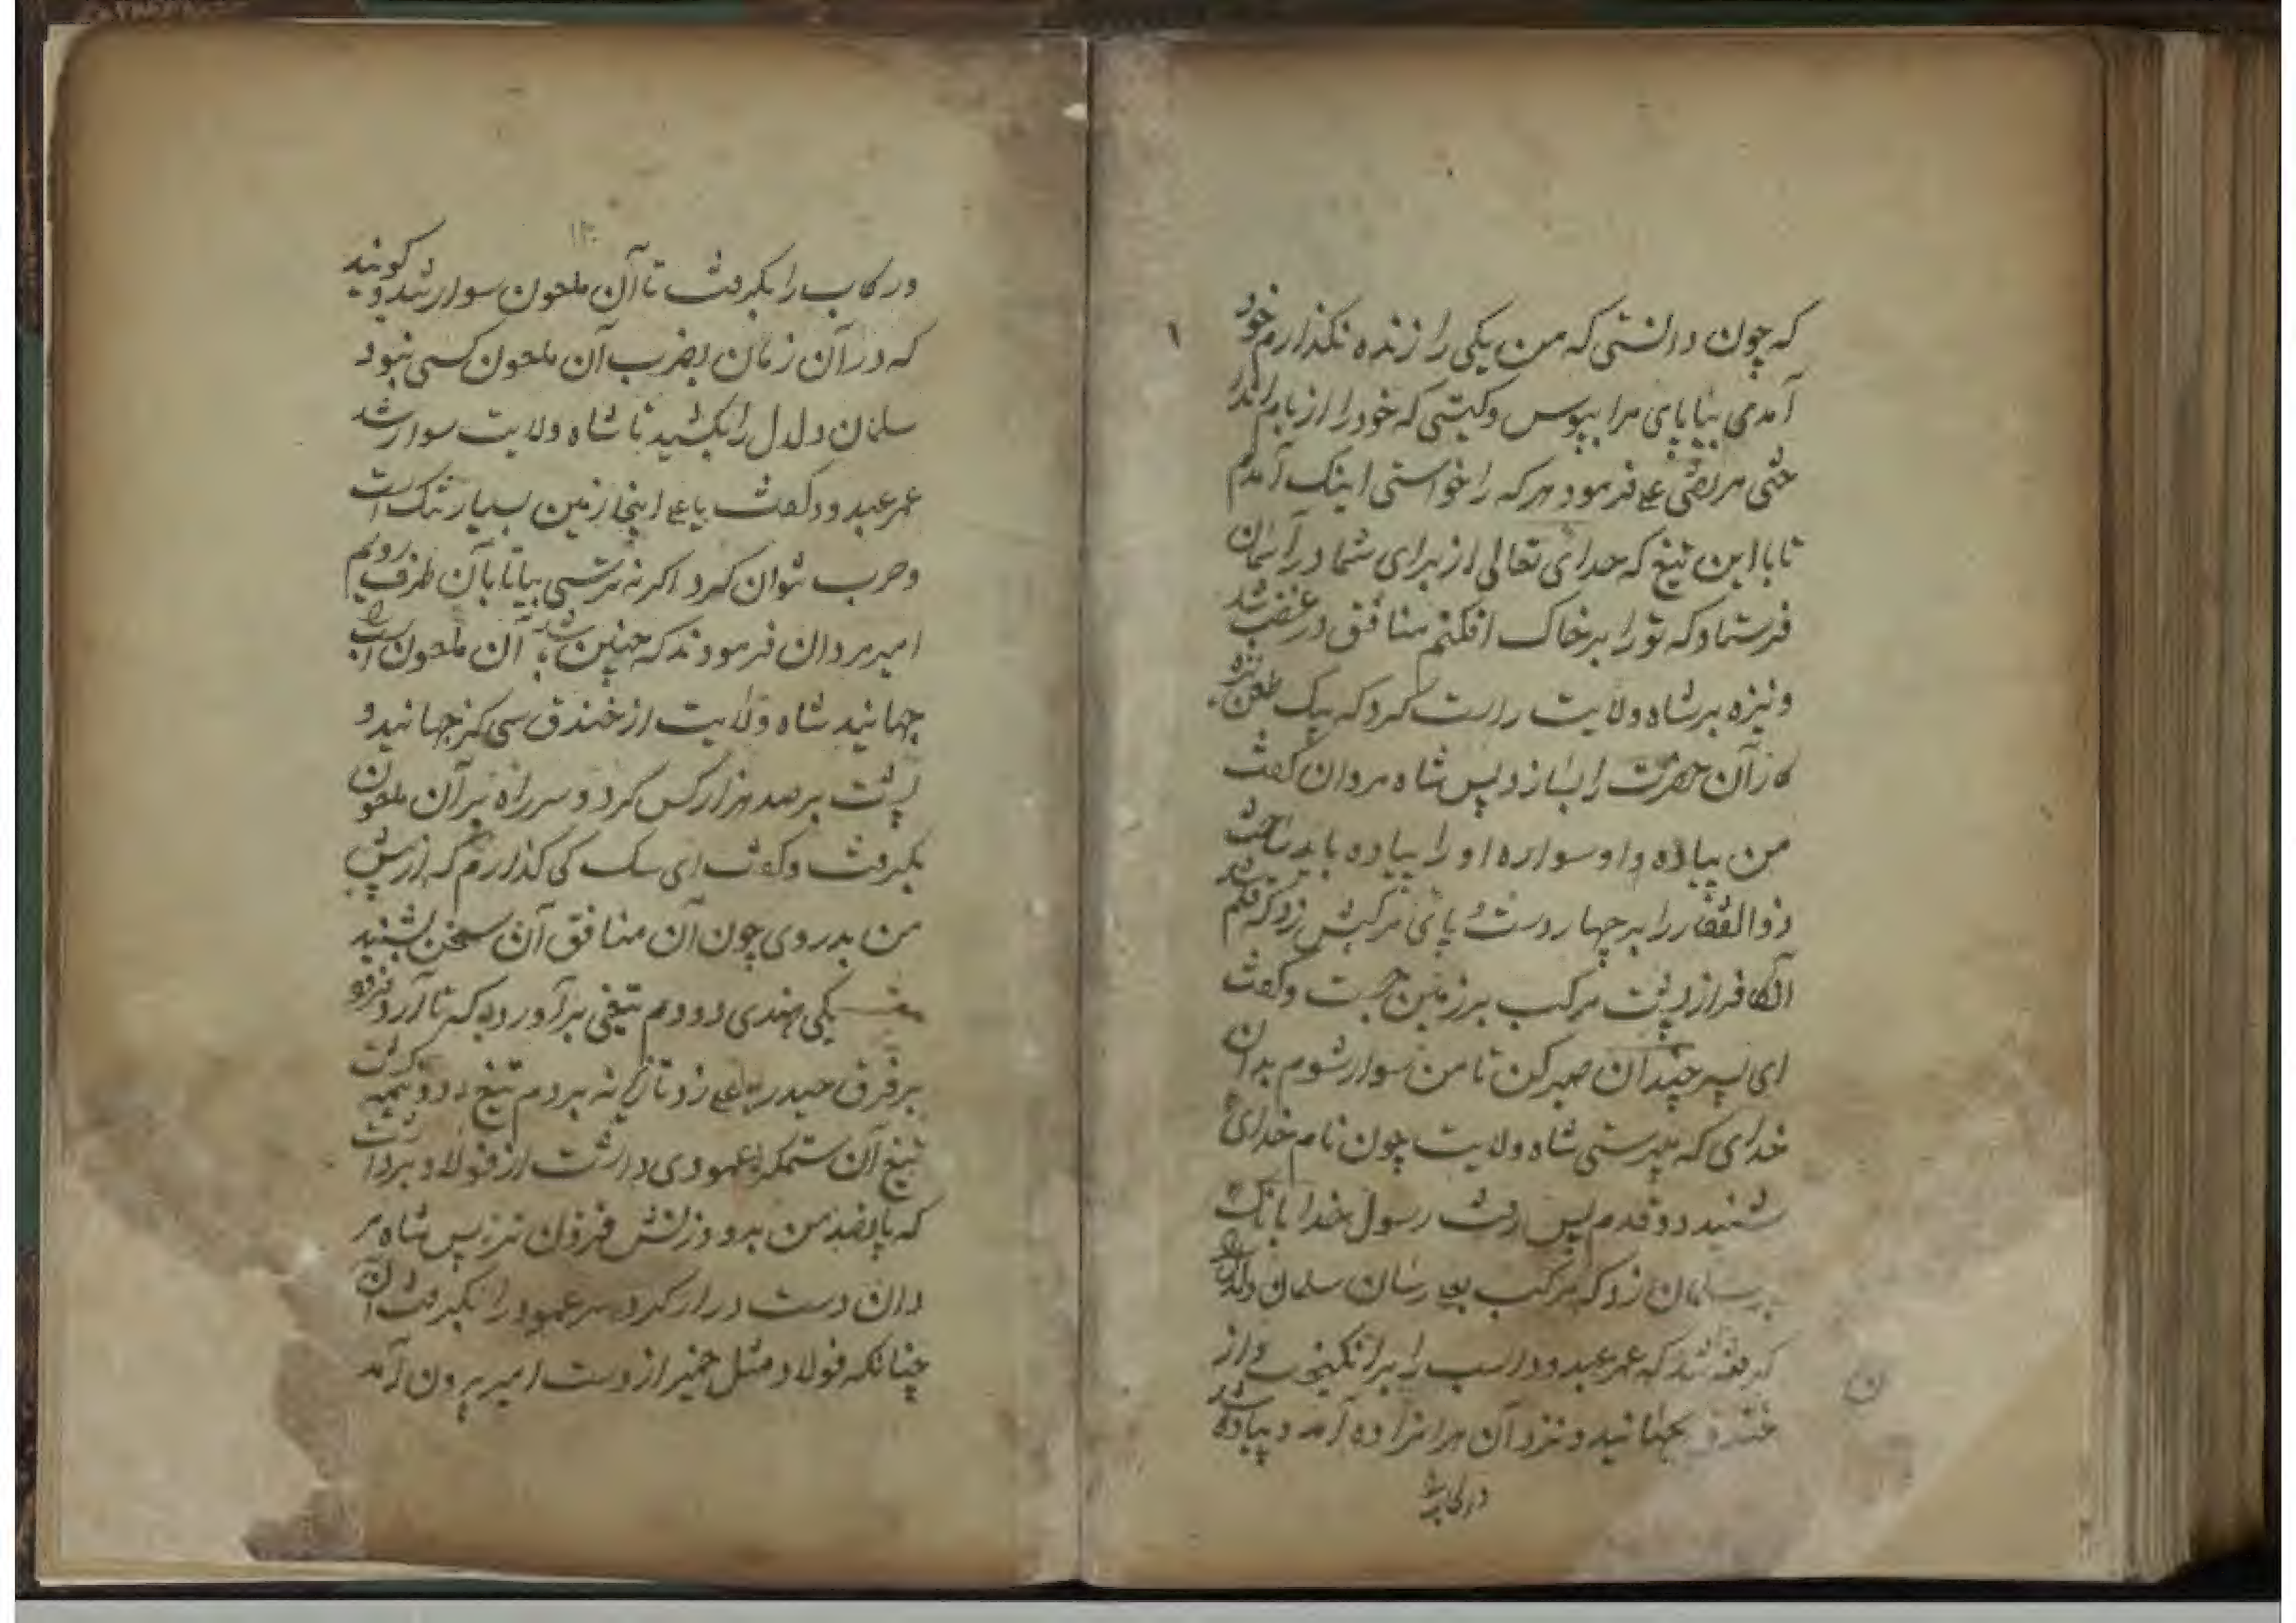 که چون دانستی که من یکی را زنده نگذارم خود
آمدی بیا پای مرا ببوس و کیستی که خود را از بام انداز
ختی مرتضی علی فرمود هر که را خواستی اینک آمدم
تا با این تیغ که خدای تعالی از برای شما در آسمان
فرستاد که تو را بر خاک افکنم منافق در غضب شد
و نیزه بر شاه ولایت راست کرد که بیک طعن نیزه
کار آن حضرت را بسازد پس شاه مردان گفت
من پیاده و او سواره او را پیاده باید ساخت
ذوالفقار را بر چهار دست و پای مرکبش زد که قلم شد
آن کافر از پشت مرکب بر زمین جست و گفت
ای پسر چندان صبر کن تا من سوار شوم بدان
خدای که میپرستی شاه ولایت چون نام خدای
شنید دو قدم پس رفت رسول خدا بانک
بر سلمان زد که مرکب بعلی رسان سلمان دلدل را
گرفته شد که عمر عبدود اسب را برانگیخت و از
خندق بجهانید و نزد آن حرامزاده آمد و پیاده شد
در رکاب
۱۳۰
و رکاب را بگرفت تا آن ملعون سوار شد و گویند
که در آن زمان بضرب آن ملعون کسی نبود
سلمان دلدل را بکشید تا شاه ولایت سوار شد
عمر عبدود گفت یا علی اینجا زمین بسیار تنک است
و حرب نتوان کرد اگر نه ترسی بیا تا بآن طرف رویم
امیر مردان فرمودند که چنین باشد آن ملعون اسب
جهانید شاه ولایت از خندق سی گز جهانید و
پشت بر صد هزار کس کرد و سر راه بر آن ملعون
بگرفت و گفت ای سک کی گذارم که از پیش
من بدر روی چون آن منافق آن سخن بشنید
یکی هندی دو دم تیغی برآورده که تا آرد فرود
بر فرق حیدر علی زد تازیانه بر دم تیغ دو نیمه گشت
تیغ آن ستمگر عمودی داشت از فولاد برداشت
که پانصد من بدو وزنش فزون تر پس شاه مر
دان دست دراز کرد سر عمود را بگرفت آن
چنانکه فولاد مثل خمیر از دست امیر بیرون آمد